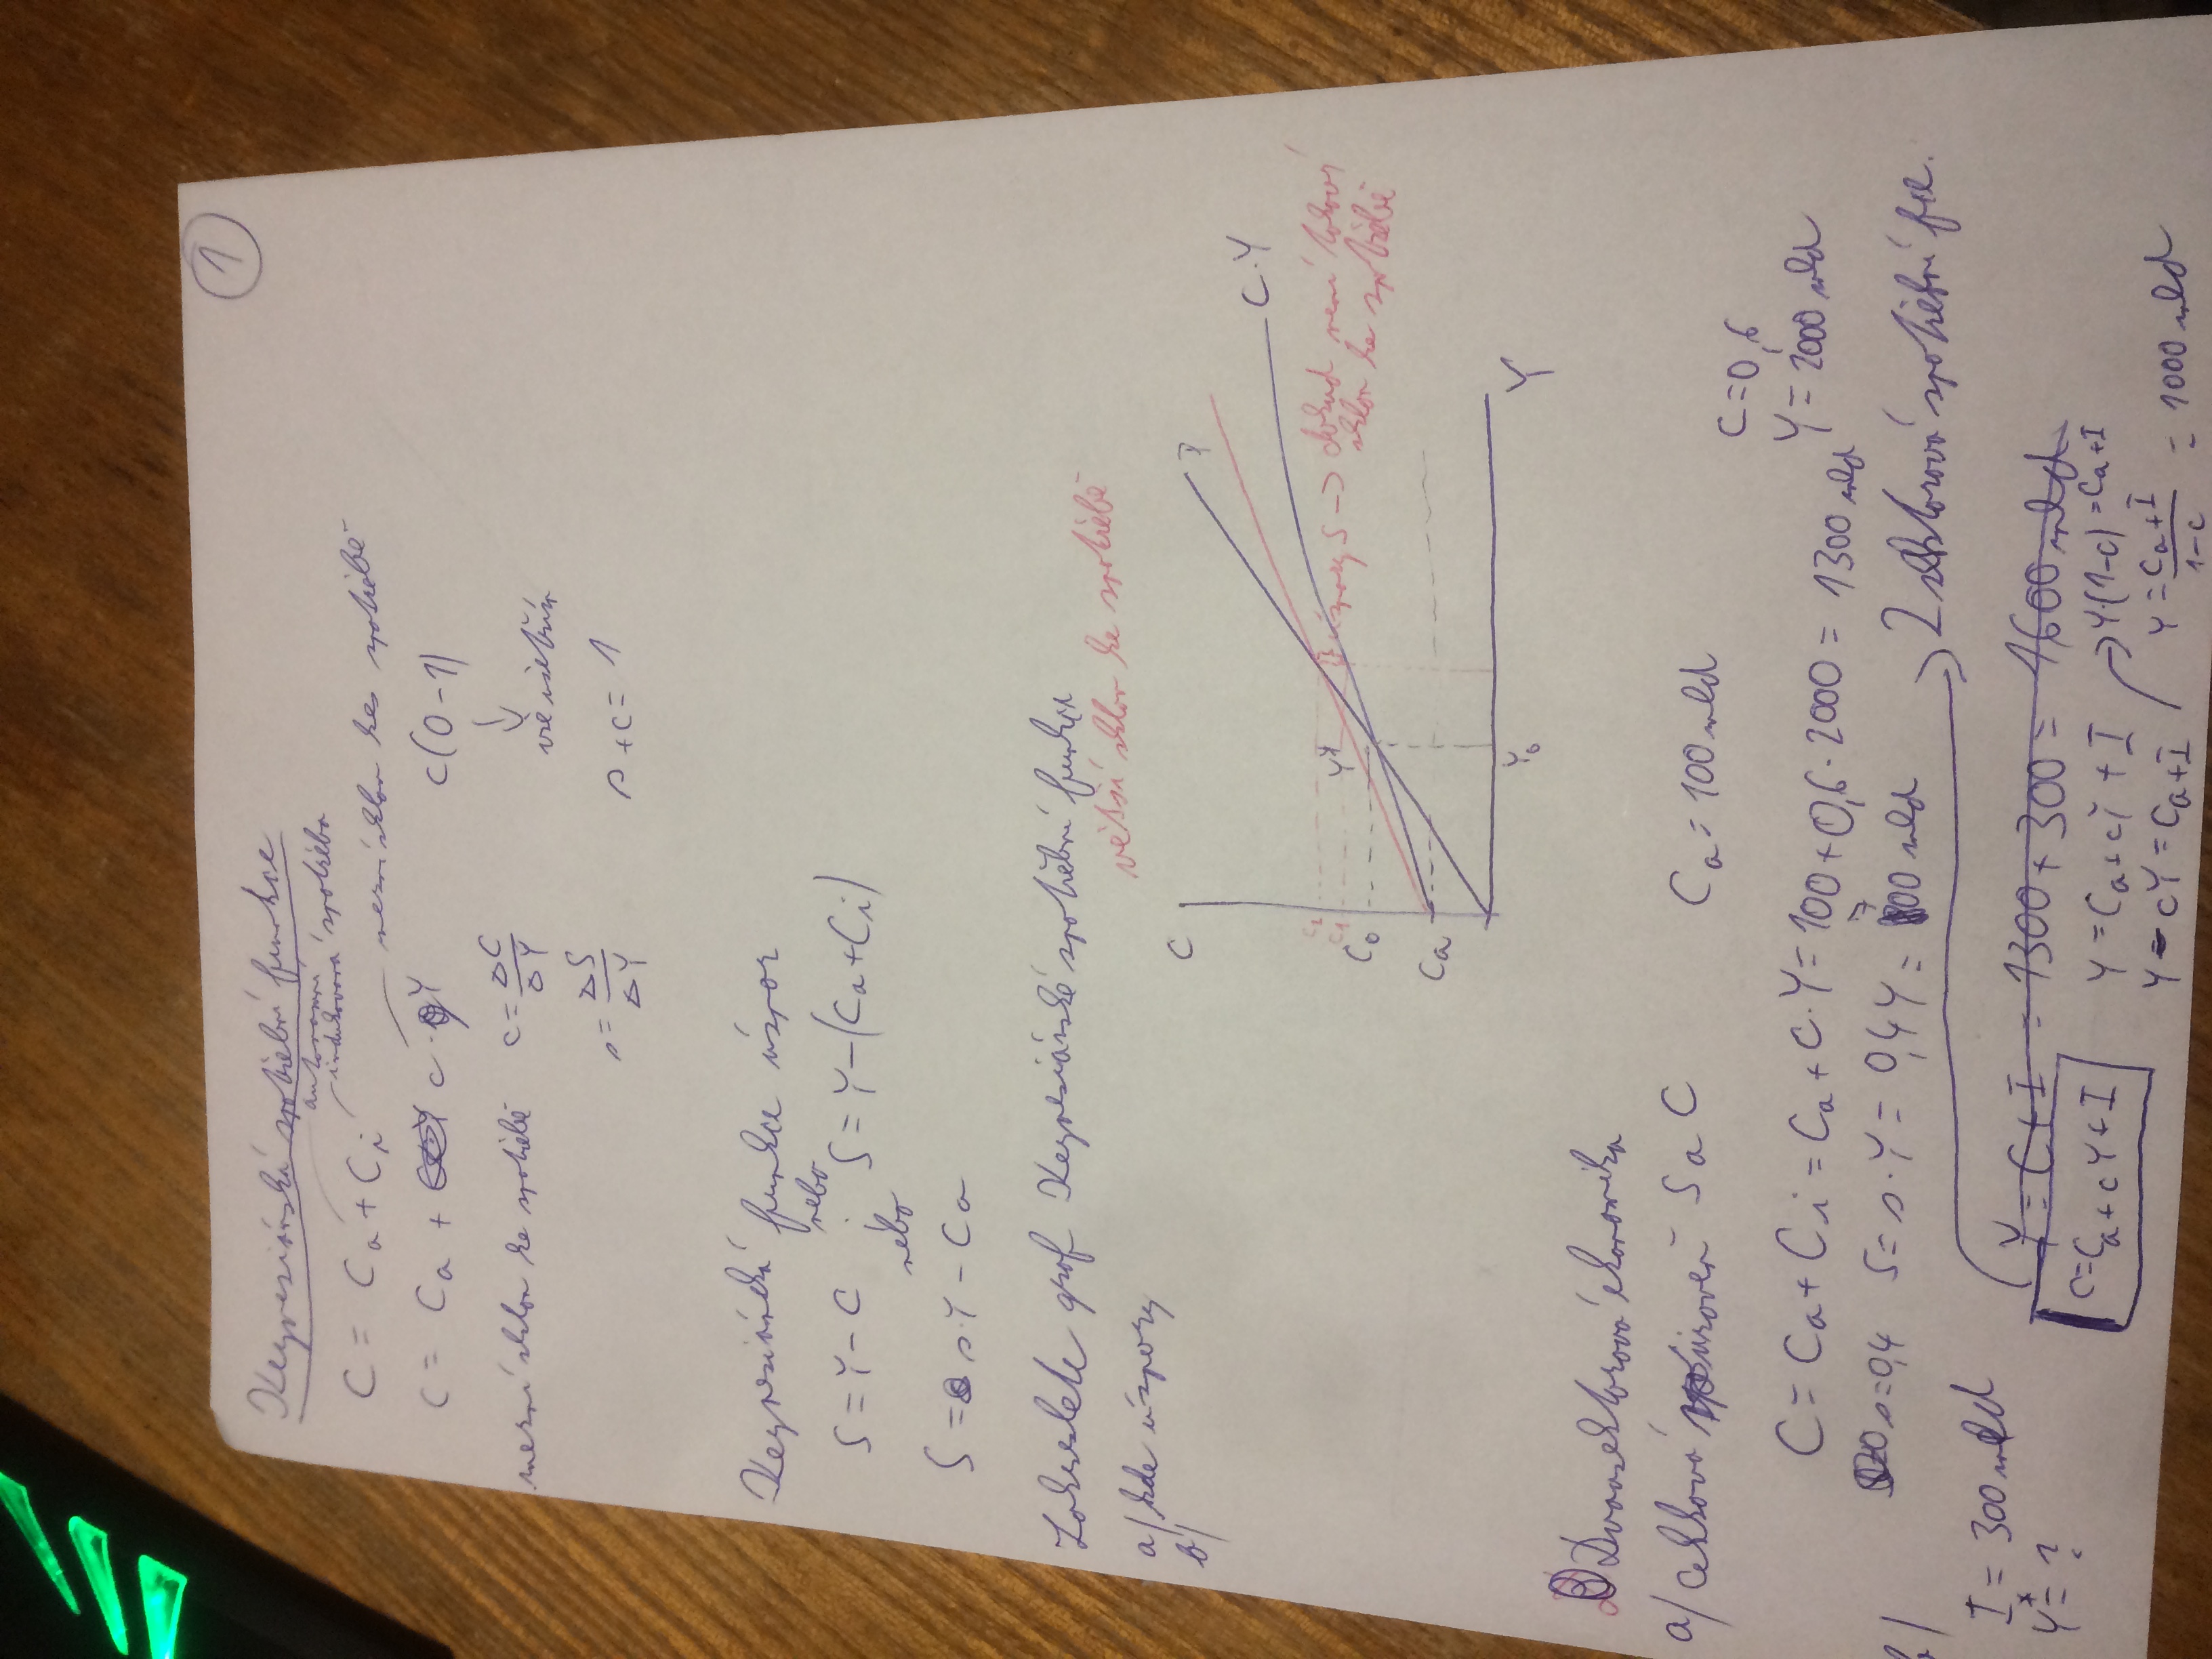 1
Keynesiánská spotřební funkce
autonomní
indukovaná spotřeba
C = Ca + Ci
mezní sklon ke spotřebě
C = Ca + c · Y
c(0-1)
mezní sklon ke spotřebě c = ΔC/ΔY
vše ušetřím
s = ΔS/ΔY
s + c = 1
Keynesiánská funkce úspor
nebo
S = Y - C ; S = Y - (Ca + Ci)
nebo
S = s·Y - Ca
Zakreslete graf Keynesiánské spotřební funkce
větší sklon ke spotřebě
a/ kde úspory
b/
C
C·Y
C2
C1
Y*
úspory S → dokud není takový
sklon ke spotřebě
C0
Ca
Y0
Y
Dvousektorová ekonomika
a/ celková úroveň S a C
Ca = 100 mld
C = 0,6
Y = 2000 mld
C = Ca + Ci = Ca + c·Y = 100 + 0,6 · 2000 = 1300 mld
s = 0,4 S = s·Y = 0,4Y = 700 mld
b/
2 sektorová spotřební fce.
I = 300 mld
Y* = ?
Y = C + I = 1300 + 300 = 1600 mld
C = Ca + cY + I
Y = Ca + cY + I
Y·(1-c) = Ca + I
Y - cY = Ca + I
Y = Ca + I / 1-c = 1000 mld